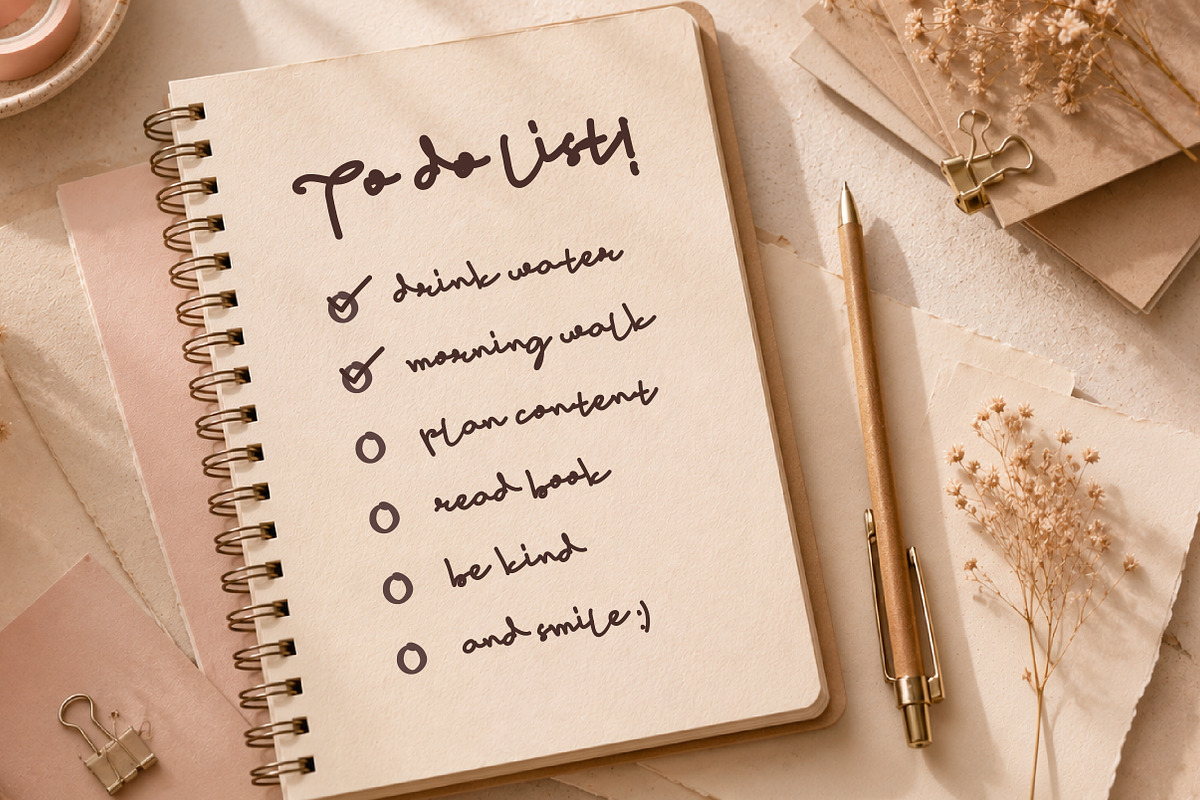 To do List!
drink water
morning walk
plan content
read book
be kind
and smile :)